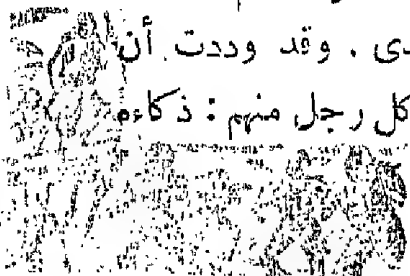 دى . وقد وددت أن
كل رجل منهم : ذكاءه